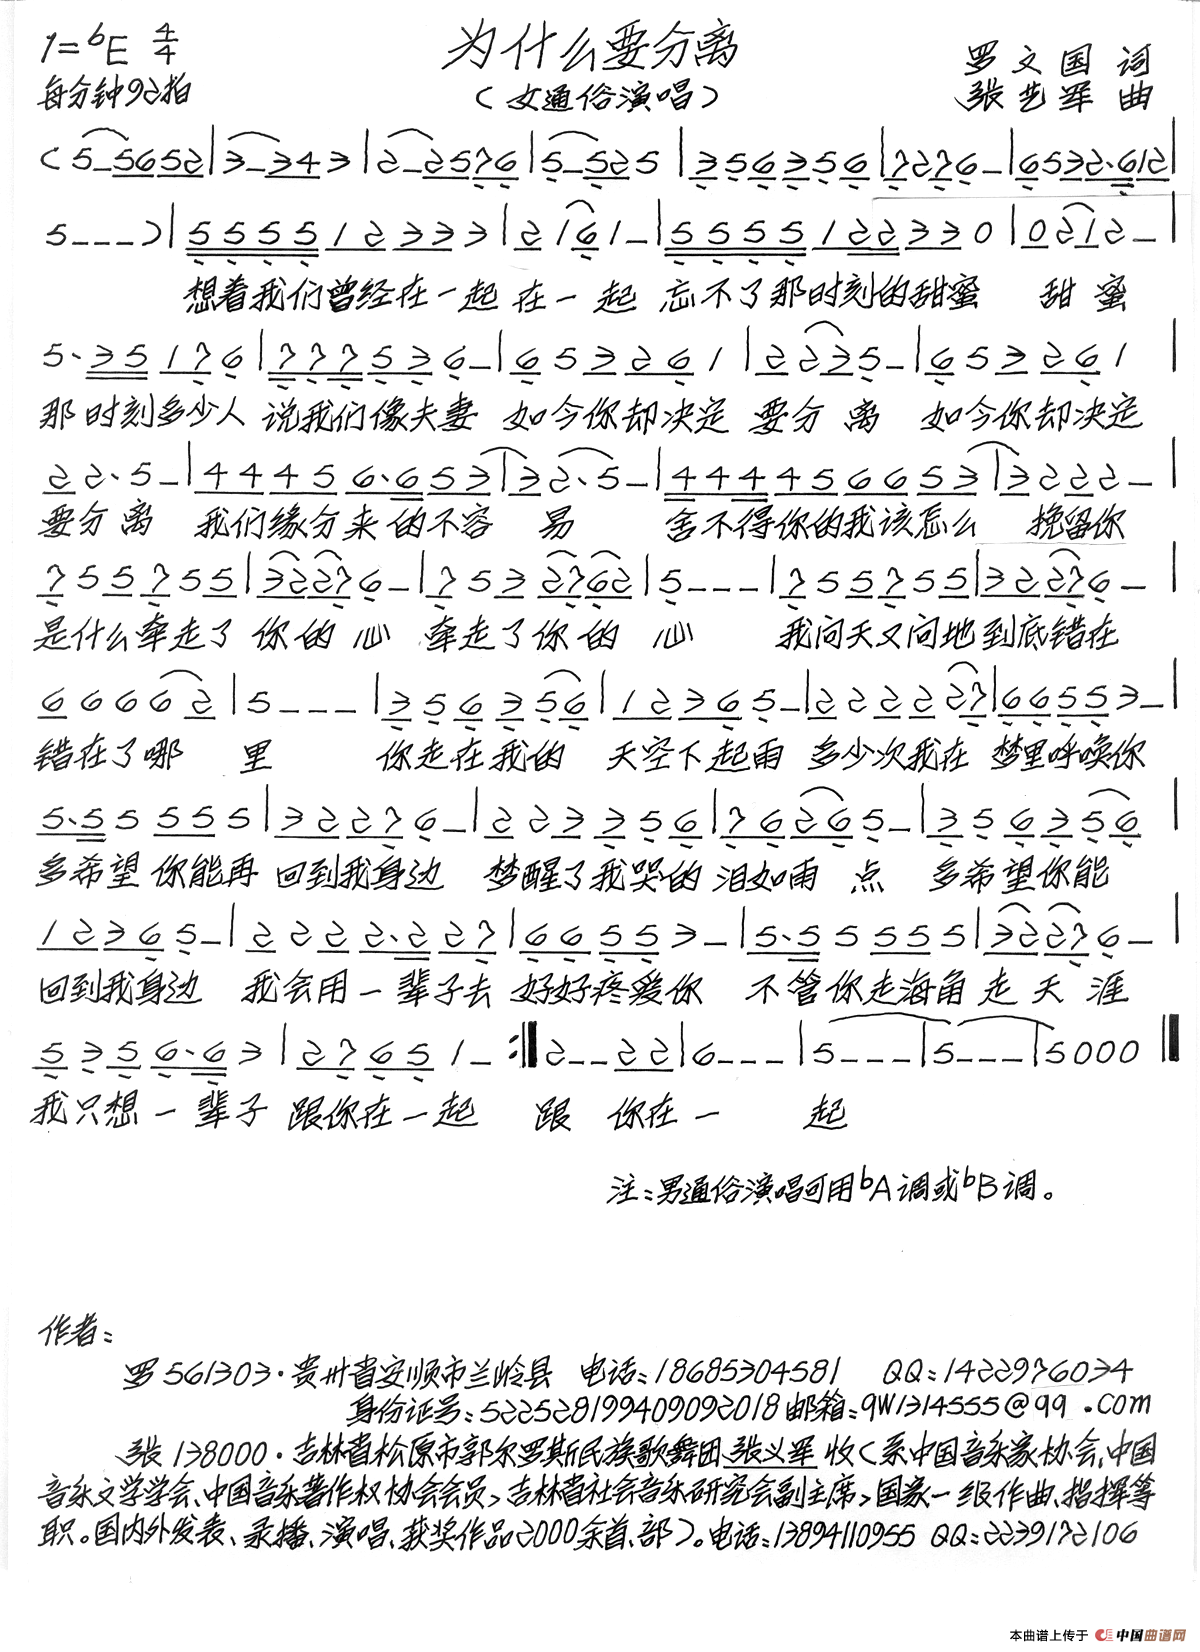 1=ᵇE 4/4
为什么要分离
罗文国 词
每分钟92拍
(女通俗演唱)
张艺军 曲
( 5 – 5 6 5 2 | 3 – 3 4 3 | 2 – 2 5 7 6 | 5 – 5 2 5 | 3 5 6 3 5 6 | 7 2 7 6 – | 6 5 3 2 · 6 1 2 |
5 – – – ) | 5 5 5 5 1 2 3 3 3 | 2 1 6 1 – | 5 5 5 5 1 2 2 3 3 0 | 0 2 1 2 – |
想着我们曾经在一起 在一起 忘不了那时刻的甜蜜 甜蜜
5 · 3 5 1 7 6 | 7 7 7 5 3 6 – | 6 5 3 2 6 1 | 2 2 3 5 – | 6 5 3 2 6 1 |
那时刻多少人 说我们像夫妻 如今你却决定 要分离 如今你却决定
2 2 · 5 – | 4 4 4 5 6 · 6 5 3 | 3 2 · 5 – | 4 4 4 4 5 6 6 5 3 | 3 2 2 2 – |
要分离 我们缘分来的不容易 舍不得你的我该怎么 挽留你
7 5 5 7 5 5 | 3 2 2 7 6 – | 7 5 3 2 7 6 2 | 5 – – – | 7 5 5 7 5 5 | 3 2 2 7 6 –
是什么牵走了 你的心 牵走了你的心 我问天又问地到底错在
6 6 6 6 6 2 | 5 – – – | 3 5 6 3 5 6 | 1 2 3 6 5 – | 2 2 2 2 2 7 | 6 6 5 5 3 – |
错在了哪 里 你走在我的 天空下起雨 多少次我在 梦里呼唤你
5 · 5 5 5 5 5 | 3 2 2 7 6 – | 2 2 3 3 5 6 | 7 6 2 6 5 – | 3 5 6 3 5 6 |
多希望 你能再 回到我身边 梦醒了我哭的 泪如雨点 多希望你能
1 2 3 6 5 – | 2 2 2 2 · 2 2 7 | 6 6 5 5 3 – | 5 · 5 5 5 5 5 | 3 2 2 7 6 – |
回到我身边 我会用一辈子去 好好疼爱你 不管你走海角 走天涯
5 3 5 6 · 6 3 | 2 7 6 5 1 – :‖ 2 – – 2 2 | 6 – – – | 5 – – – | 5 – – – | 5 0 0 0 ‖
我只想一辈子 跟你在一起 跟 你在一 起
注:男通俗演唱可用ᵇA调或ᵇB调。
作者:
罗 561303·贵州省安顺市兰岭县 电话:18685304581 QQ:1422976034
身份证号:522528199409092018 邮箱:qw1314555@qq.com
张 138000·吉林省松原市郭尔罗斯民族歌舞团 张义军 收(系中国音乐家协会,中国
音乐文学学会、中国音乐著作权协会会员,吉林省社会音乐研究会副主席,国家一级作曲、指挥等
职。国内外发表、录播、演唱、获奖作品2000余首、部)。电话:13894110955 QQ:2239172106
本曲谱上传于 中国曲谱网